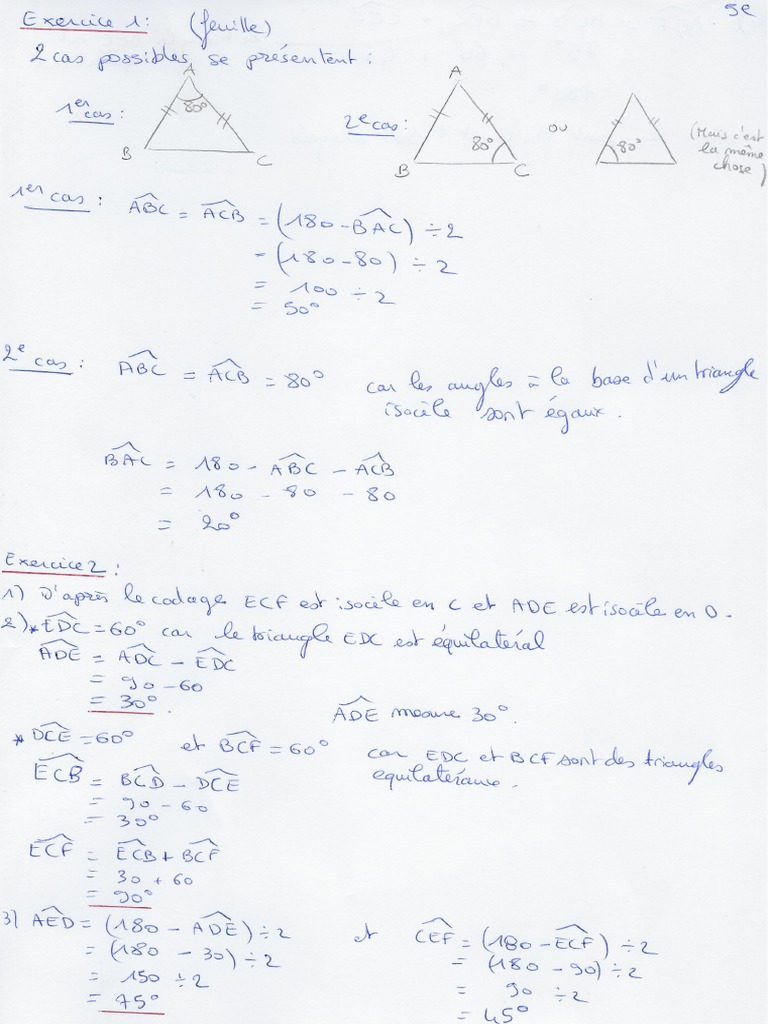 5e
Exercice 1 : (feuille)
2 cas possibles se présentent :
1er cas :
A
80°
B
C
2e cas :
A
80°
B
C
ou
80°
(Mais c'est
la même
chose)
1er cas : ABC = ACB = (180 - BAC) ÷ 2
= (180 - 80) ÷ 2
= 100 ÷ 2
= 50°
2e cas : ABC = ACB = 80° car les angles à la base d'un triangle
isocèle sont égaux.
BAC = 180 - ABC - ACB
= 180 - 80 - 80
= 20°
Exercice 2 :
1) D'après le codage ECF est isocèle en C et ADE est isocèle en D.
2) * EDC = 60° car le triangle EDC est équilatéral
ADE = ADC - EDC
= 90 - 60
= 30°.
ADE mesure 30°.
* DCE = 60° et BCF = 60° car EDC et BCF sont des triangles
équilatéraux.
ECB = BCD - DCE
= 90 - 60
= 30°
ECF = ECB + BCF
= 30 + 60
= 90°
3) AED = (180 - ADE) ÷ 2 et CEF = (180 - ECF) ÷ 2
= (180 - 30) ÷ 2 = (180 - 90) ÷ 2
= 150 ÷ 2 = 90 ÷ 2
= 75° = 45°